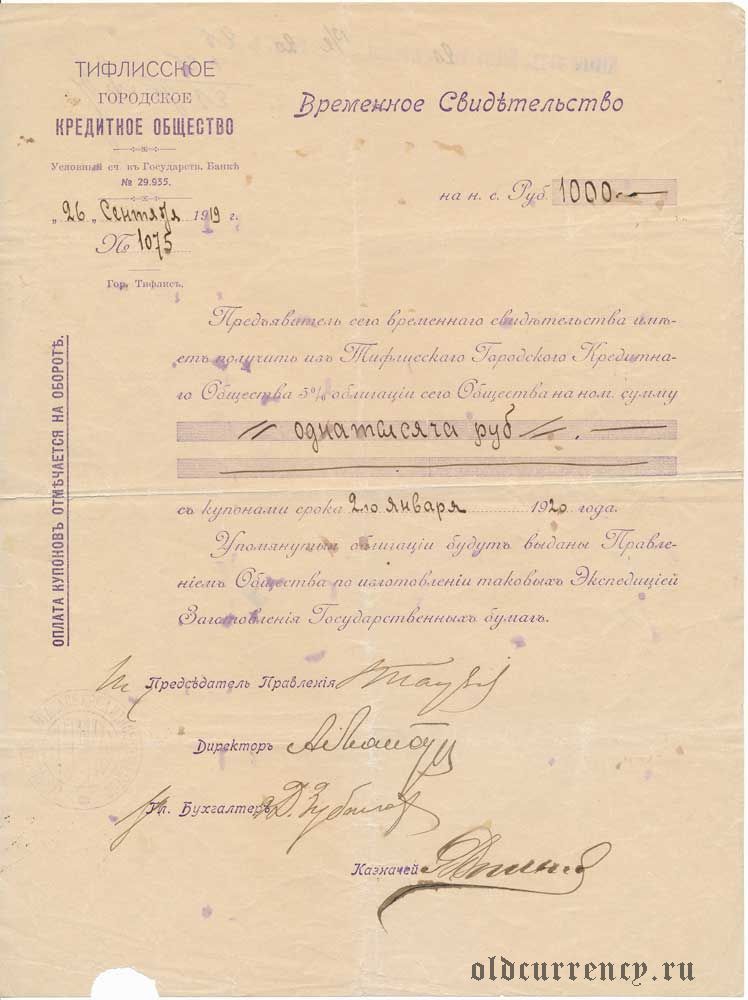 ТИФЛИССКОЕ
ГОРОДСКОЕ
КРЕДИТНОЕ ОБЩЕСТВО
Условный сч. въ Государств. Банкѣ
№ 29.935.
„26„ Сентября 1919 г.
№ 1075
Гор. Тифлисъ.
Временное Свидѣтельство
на н. с. Руб. 1000
Предъявитель сего временнаго свидѣтельства имѣ-
етъ получить изъ Тифлисскаго Городского Кредитна-
го Общества 5% облигаціи сего Общества на ном. сумму
// одна тысяча руб //.
съ купонами срока 2го января 1920 года.
Упомянутыя облигаціи будутъ выданы Правле-
ніемъ Общества по изготовленіи таковыхъ Экспедиціей
Заготовленія Государственныхъ бумагъ.
ОПЛАТА КУПОНОВЪ ОТМѢЧАЕТСЯ НА ОБОРОТѢ.
Предсѣдатель Правленія
Директоръ
Гл. Бухгалтеръ
Казначей
oldcurrency.ru